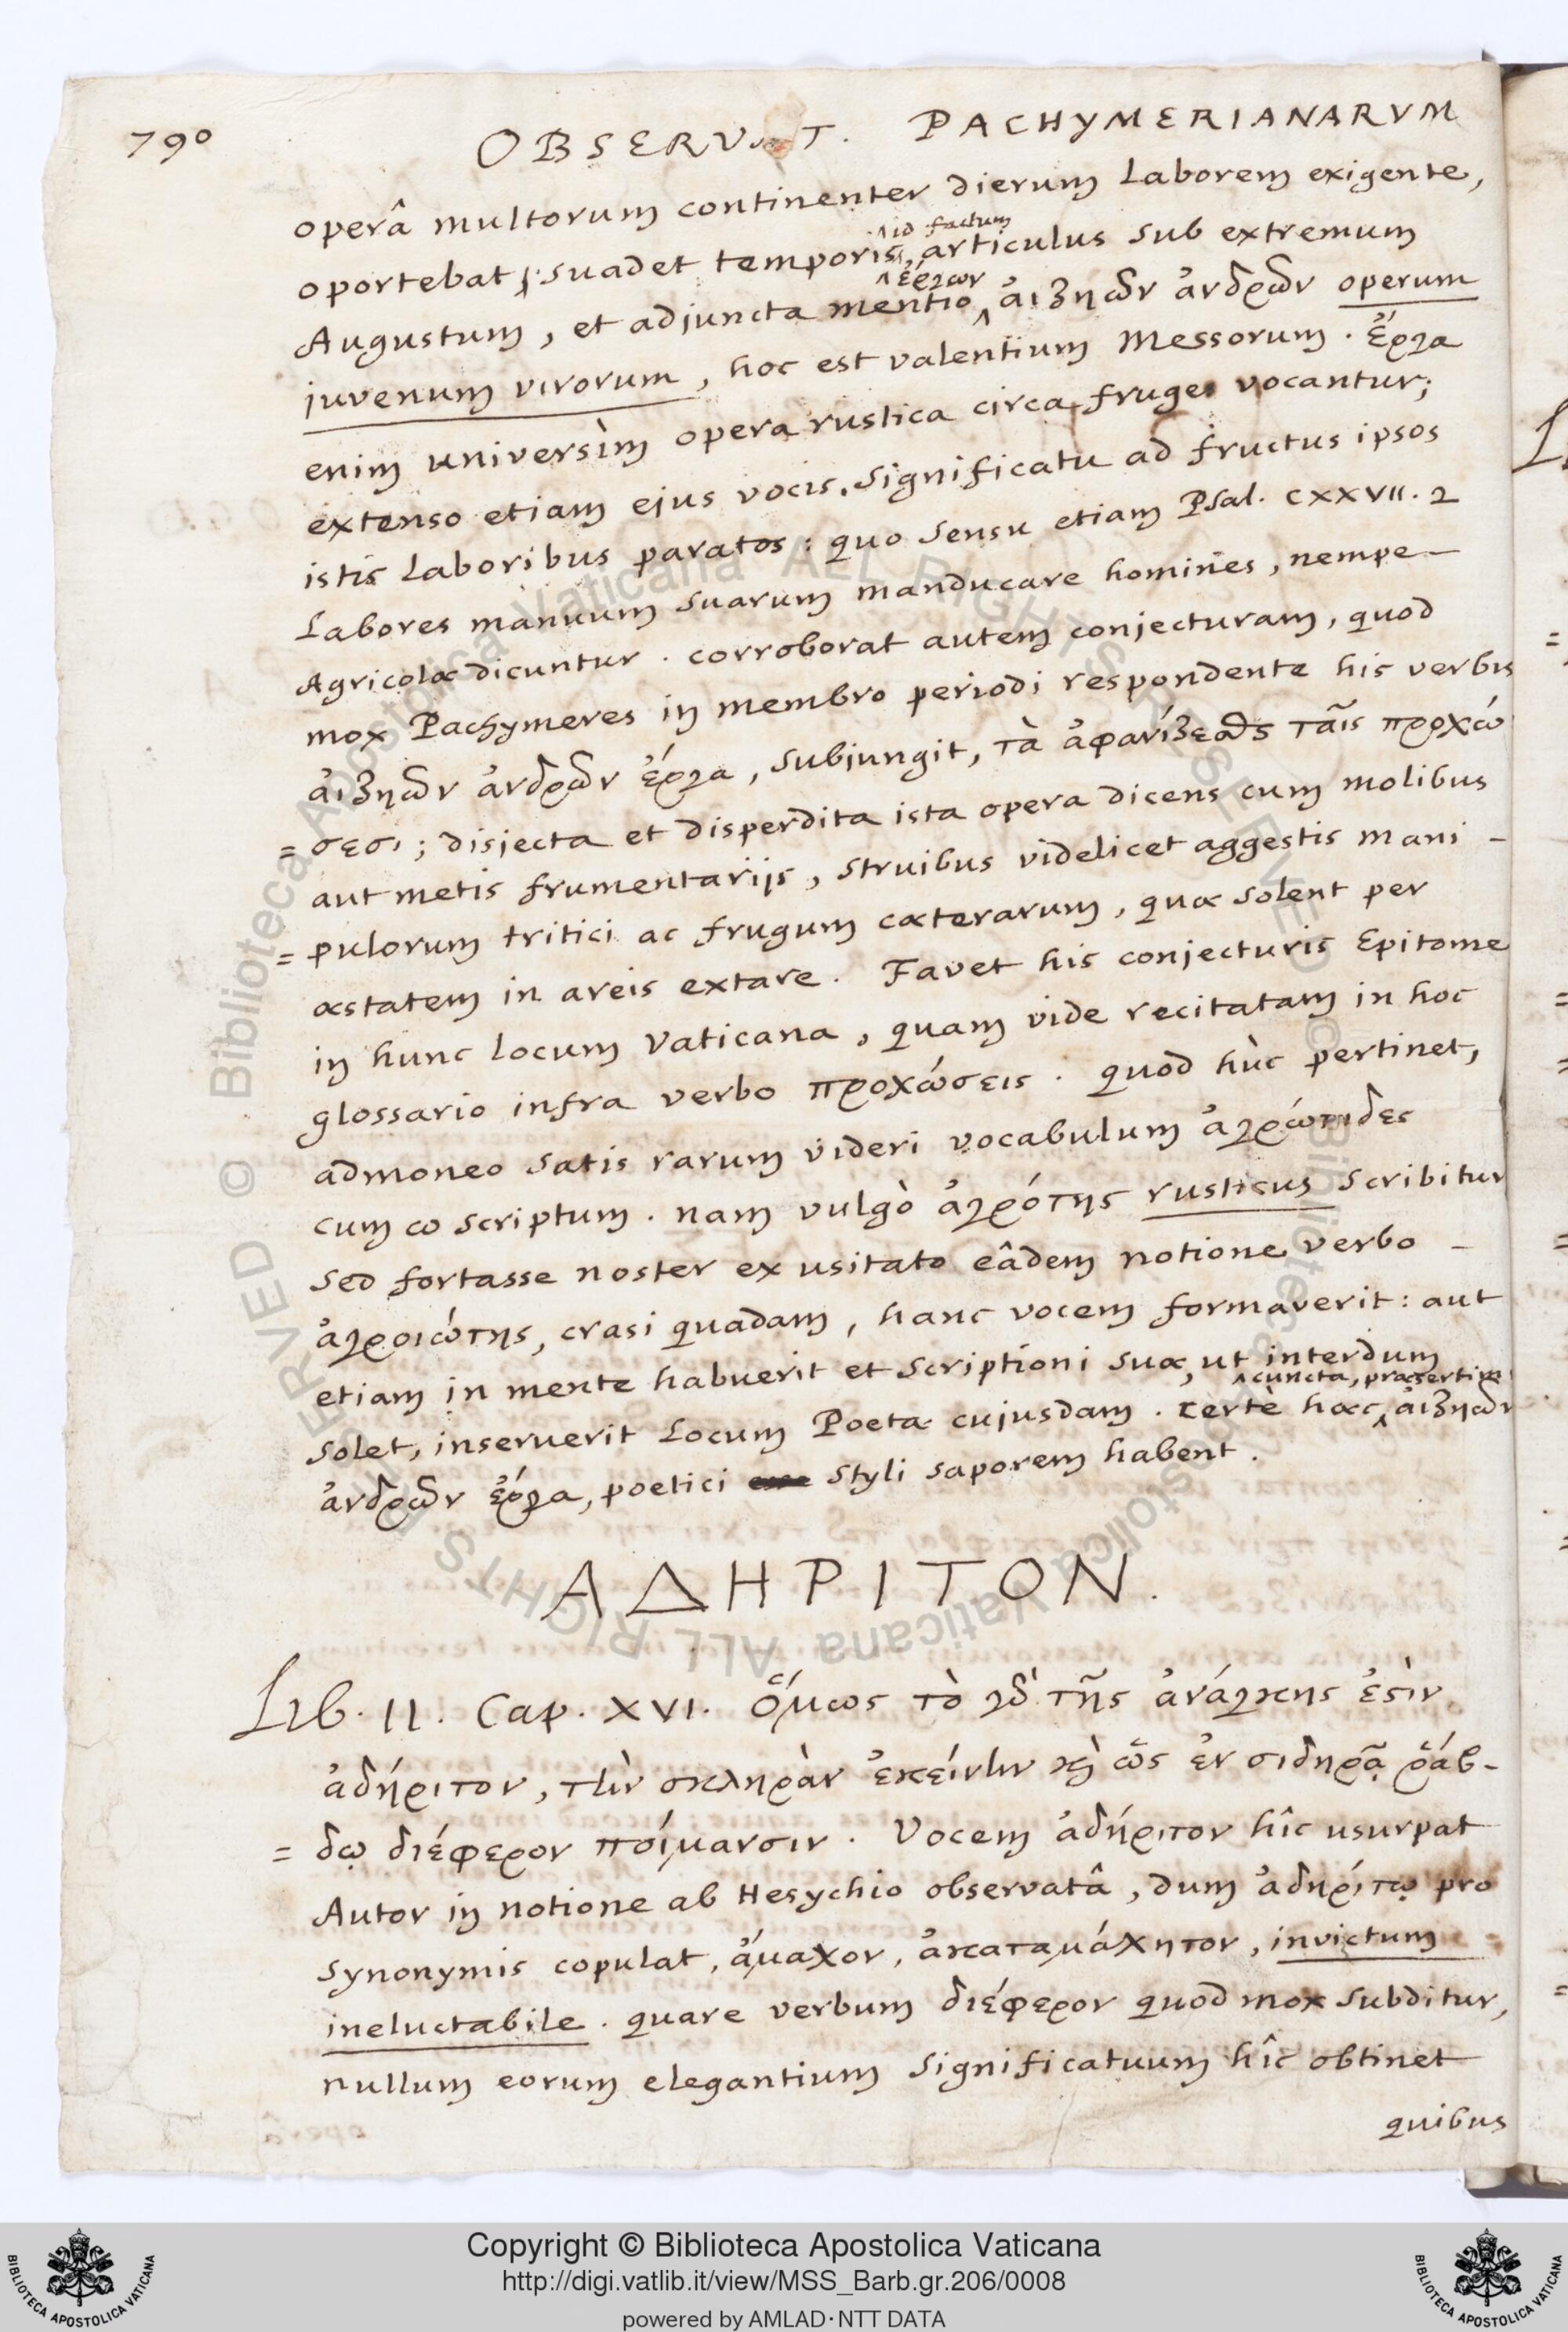 790
OBSERVAT. PACHYMERIANARVM
operâ multorum continenter dierum laborem exigente,
^ id factum
oportebat; suadet temporis, articulus sub extremum
^ ἔργων
Augustum, et adjuncta mentio ^ ἀιζηῶν ἀνδρῶν operum
juvenum virorum, hoc est valentium Messorum. ἔργα
enim universìm opera rustica circa fruges vocantur;
extenso etiam ejus vocis significatu ad fructus ipsos
istis laboribus paratos: quo sensu etiam Psal. CXXVII. 2
Labores manuum suarum manducare homines, nempe
Agricolæ dicuntur. corroborat autem conjecturam, quod
mox Pachymeres in membro periodi respondente his verbis
ἀιζηῶν ἀνδρῶν ἔργα, subjungit, τὰ ἀφανίζεσθαι ταῖς προχώ
= σεσι; disjecta et disperdita ista opera dicens cum molibus
aut metis frumentariis, struibus videlicet aggestis mani-
= pulorum tritici ac frugum cæterarum, quæ solent per
æstatem in areis extare. Favet his conjecturis Epitome
in hunc locum Vaticana, quam vide recitatam in hoc
glossario infra verbo προχώσεις. quod hùc pertinet,
admoneo satis rarum videri vocabulum ἀγρώτιδες
cum ω scriptum. nam vulgò ἀγρότης rusticus scribitur
sed fortasse noster ex usitato eâdem notione verbo
ἀγροιώτης, crasi quadam, hanc vocem formaverit: aut
etiam in mente habuerit et scriptioni suæ, ut interdum
^ cuncta, præsertim
solet, inseruerit locum Poetæ cujusdam. certè hæc ^ ἀιζηῶν
ἀνδρῶν ἔργα, poetici styli saporem habent.
ΑΔΗΡΙΤΟΝ.
Lib. II. Cap. XVI. Ὅμως τὸ γοῦν τῆς ἀνάγκης ἐστὶν
ἀδήριτον, τὴν σκληρὰν ἐκείνην καὶ ὡς ἐν σιδηρᾷ ῥάβ-
= δῳ διέφερον ποίμανσιν. Vocem ἀδήριτον hîc usurpat
Autor in notione ab Hesychio observatâ, dum ἀδηρίτῳ pro
synonymis copulat, ἄμαχον, ἀκαταμάχητον, invictum
ineluctabile. quare verbum διέφερον quod mox subditur,
nullum eorum elegantium significatuum hîc obtinet
quibus
Copyright © Biblioteca Apostolica Vaticana
http://digi.vatlib.it/view/MSS_Barb.gr.206/0008
powered by AMLAD·NTT DATA
BIBLIOTECA APOSTOLICA VATICANA
BIBLIOTECA APOSTOLICA VATICANA
© Biblioteca Apostolica Vaticana ALL RIGHTS RESERVED
© Biblioteca Apostolica Vaticana ALL RIGHTS RESERVED